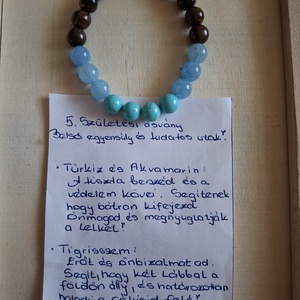 5. Születési ásvány
Belső egyensúly és tudatos utak!
• Türkiz és Akvamarin:
A tiszta beszéd és a
védelem kövei. Segítenek
hogy bátran kifejezd
önmagad és megnyugtatják
a lelket!
• Tigrisszem:
Erőt és önbizalmat ad.
Segít, hogy két lábbal a
földön állj, és határozottan
haladj a céljaid felé!